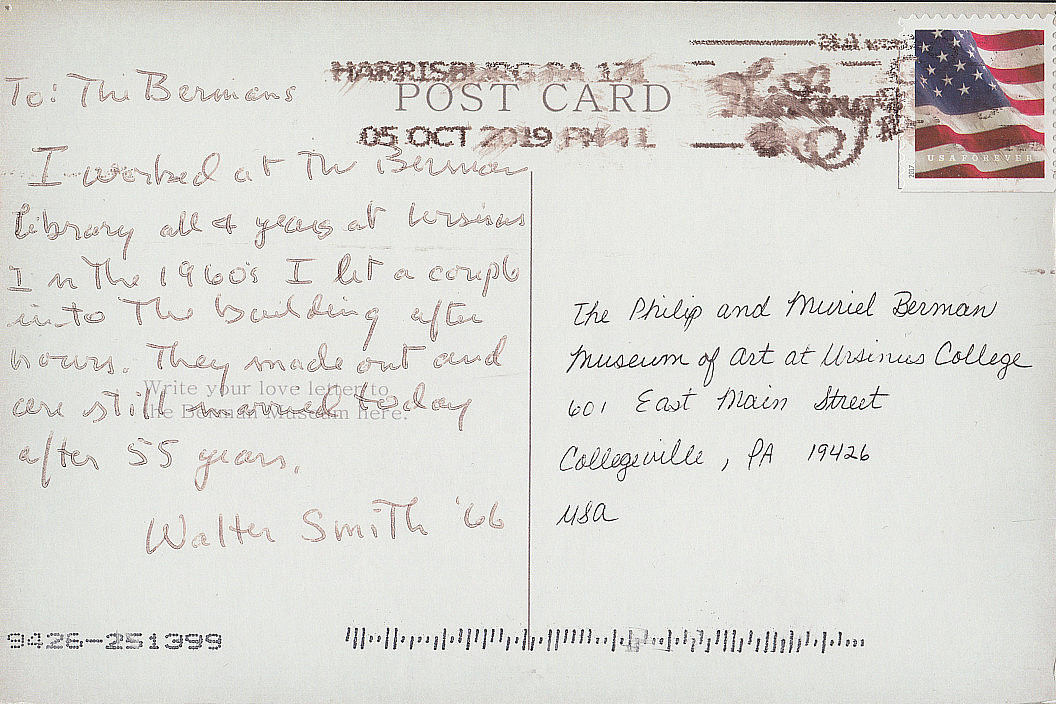 To: The Bermans
I worked at The Berman
library all 4 years at Ursinus
In the 1960's I let a couple
into The building after
hours. They made out and
are still married today
after 55 years.
Walter Smith '66
Write your love letter to
the Berman Museum here.
HARRISBURG PA 171
POST CARD
05 OCT 2019 PM 4 L
USA FOREVER
2017
The Philip and Muriel Berman
Museum of Art at Ursinus College
601 East Main Street
Collegeville, PA 19426
USA
9426-251399